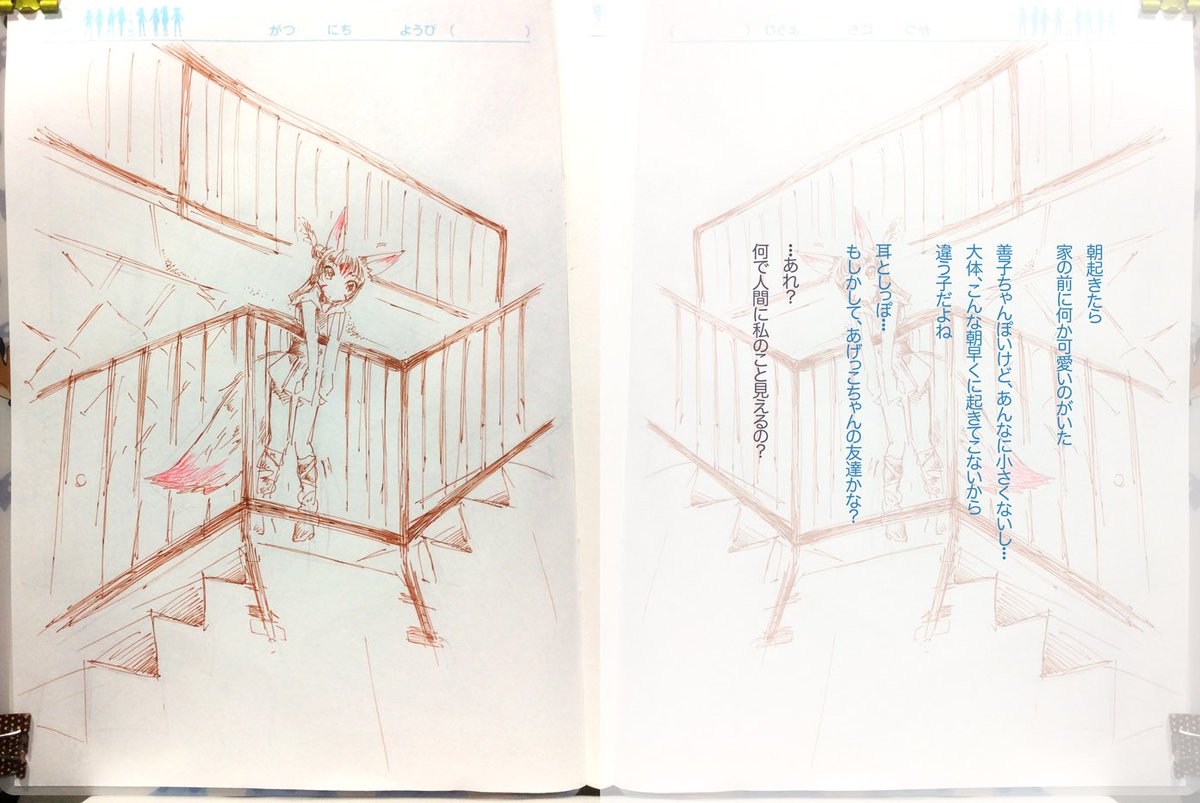 がつ にち ようび ( )
朝起きたら
家の前に何か可愛いのがいた
善子ちゃんぽいけど、あんなに小さくないし…
大体、こんな朝早くに起きてこないから
違う子だよね
耳としっぽ…
もしかして、あげっこちゃんの友達かな？
…あれ？
何で人間に私のこと見えるの？